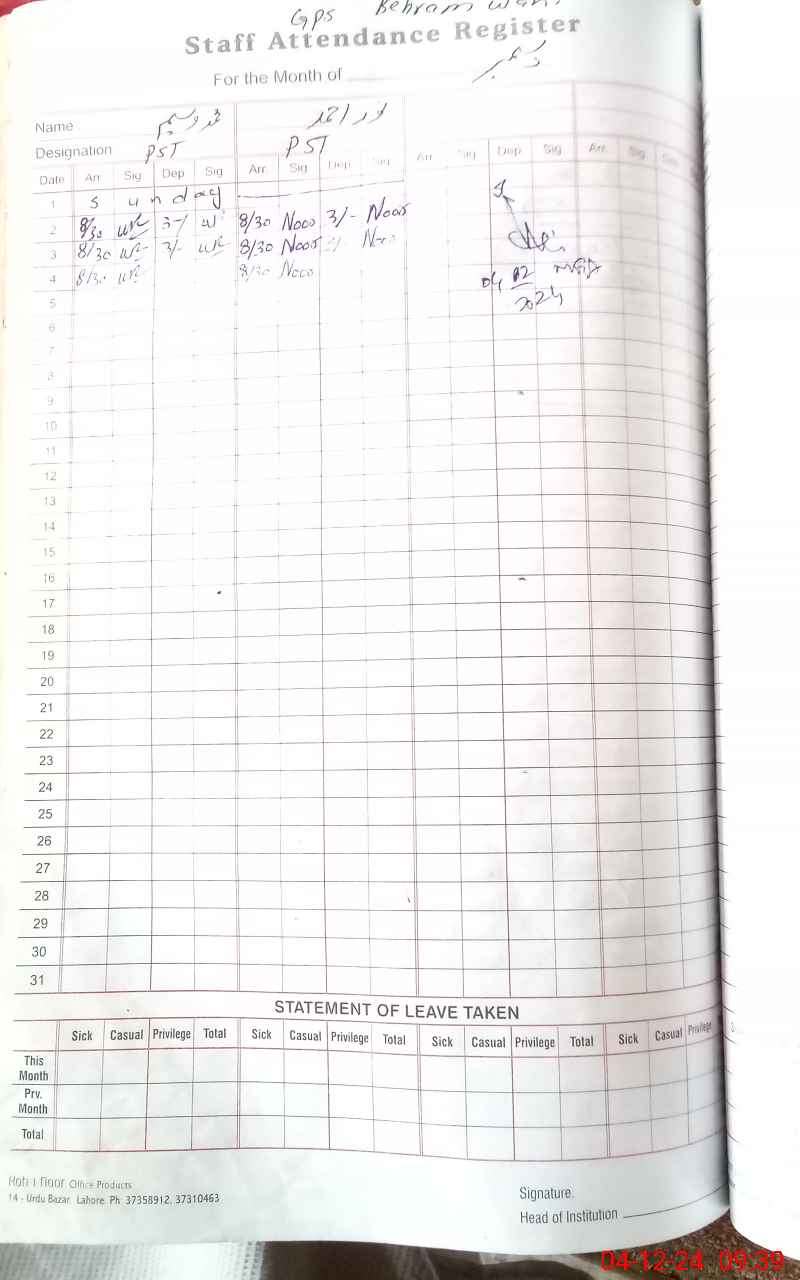 GPS Behram
Staff Attendance Register
For the Month of دسمبر
Name محمد وسیم نور احمد
Designation PST PST
Date Arr Sig Dep Sig Arr. Sig Dep Sig Arr Sig Dep Sig Arr Sig Sig
1 Sunday
2 8/30 3/- 8/30 Noor 3/- Noor
3 8/30 3/- 8/30 Noor 3/- Noor
4 8/30 8/30 Noor
04 12
2024
5
6
7
8
9
10
11
12
13
14
15
16
17
18
19
20
21
22
23
24
25
26
27
28
29
30
31
STATEMENT OF LEAVE TAKEN
Sick Casual Privilege Total Sick Casual Privilege Total Sick Casual Privilege Total Sick Casual Privilege
This
Month
Prv.
Month
Total
Office Products
14 - Urdu Bazar, Lahore. Ph: 37358912, 37310463
Signature.
Head of Institution
04-12-24 09:39